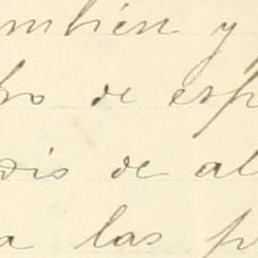 mbién y
ho de esp
dis de al
a las p